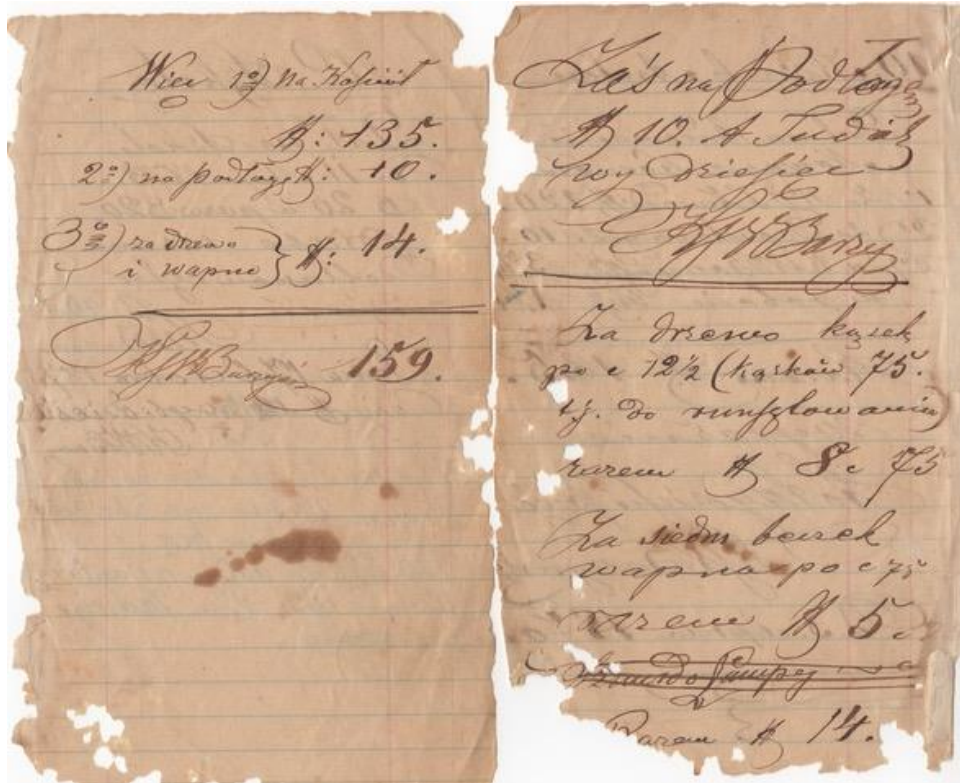 Więc 1º) Na Kościół
#: 135.
2º) na podłogę #: 10.
3º) za drzewo
i wapno } #: 14.
159.
Zaś na Podłogę
# 10. A Tudzież
wy dziesięć
Za drzewo kąsek
po c 12½ (kąsków 75.
tj. do runsztowania)
razem # 8 c 75
Za siedm beczek
wapna po c 75
razem # 5.
Razem # 14.